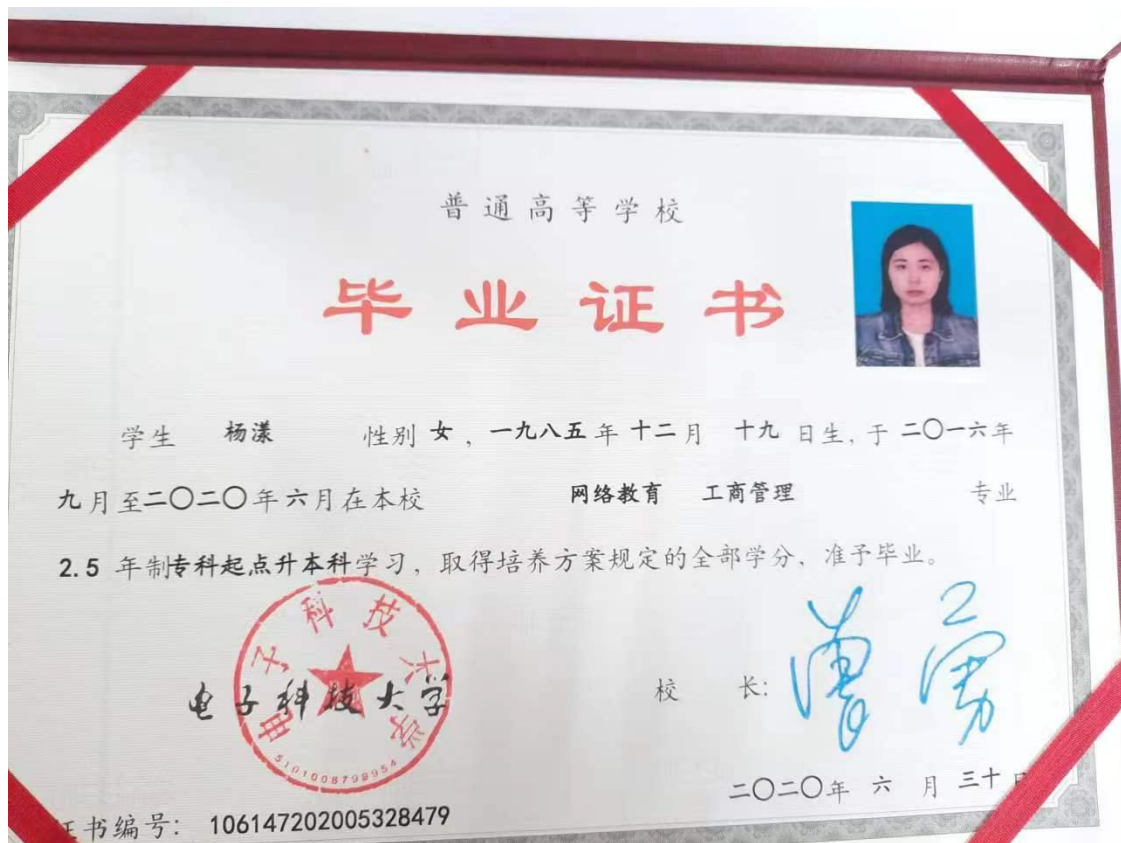 普通高等学校
毕业证书
学生 杨漾 性别 女，一九八五年 十二月 十九 日生，于 二〇一六年
九月至二〇二〇年六月在本校 网络教育 工商管理 专业
2.5 年制专科起点升本科学习，取得培养方案规定的全部学分，准予毕业。
电子科技大学
电子科技大学
5101008798954
校 长：曾勇
二〇二〇年 六 月 三十日
证书编号：106147202005328479